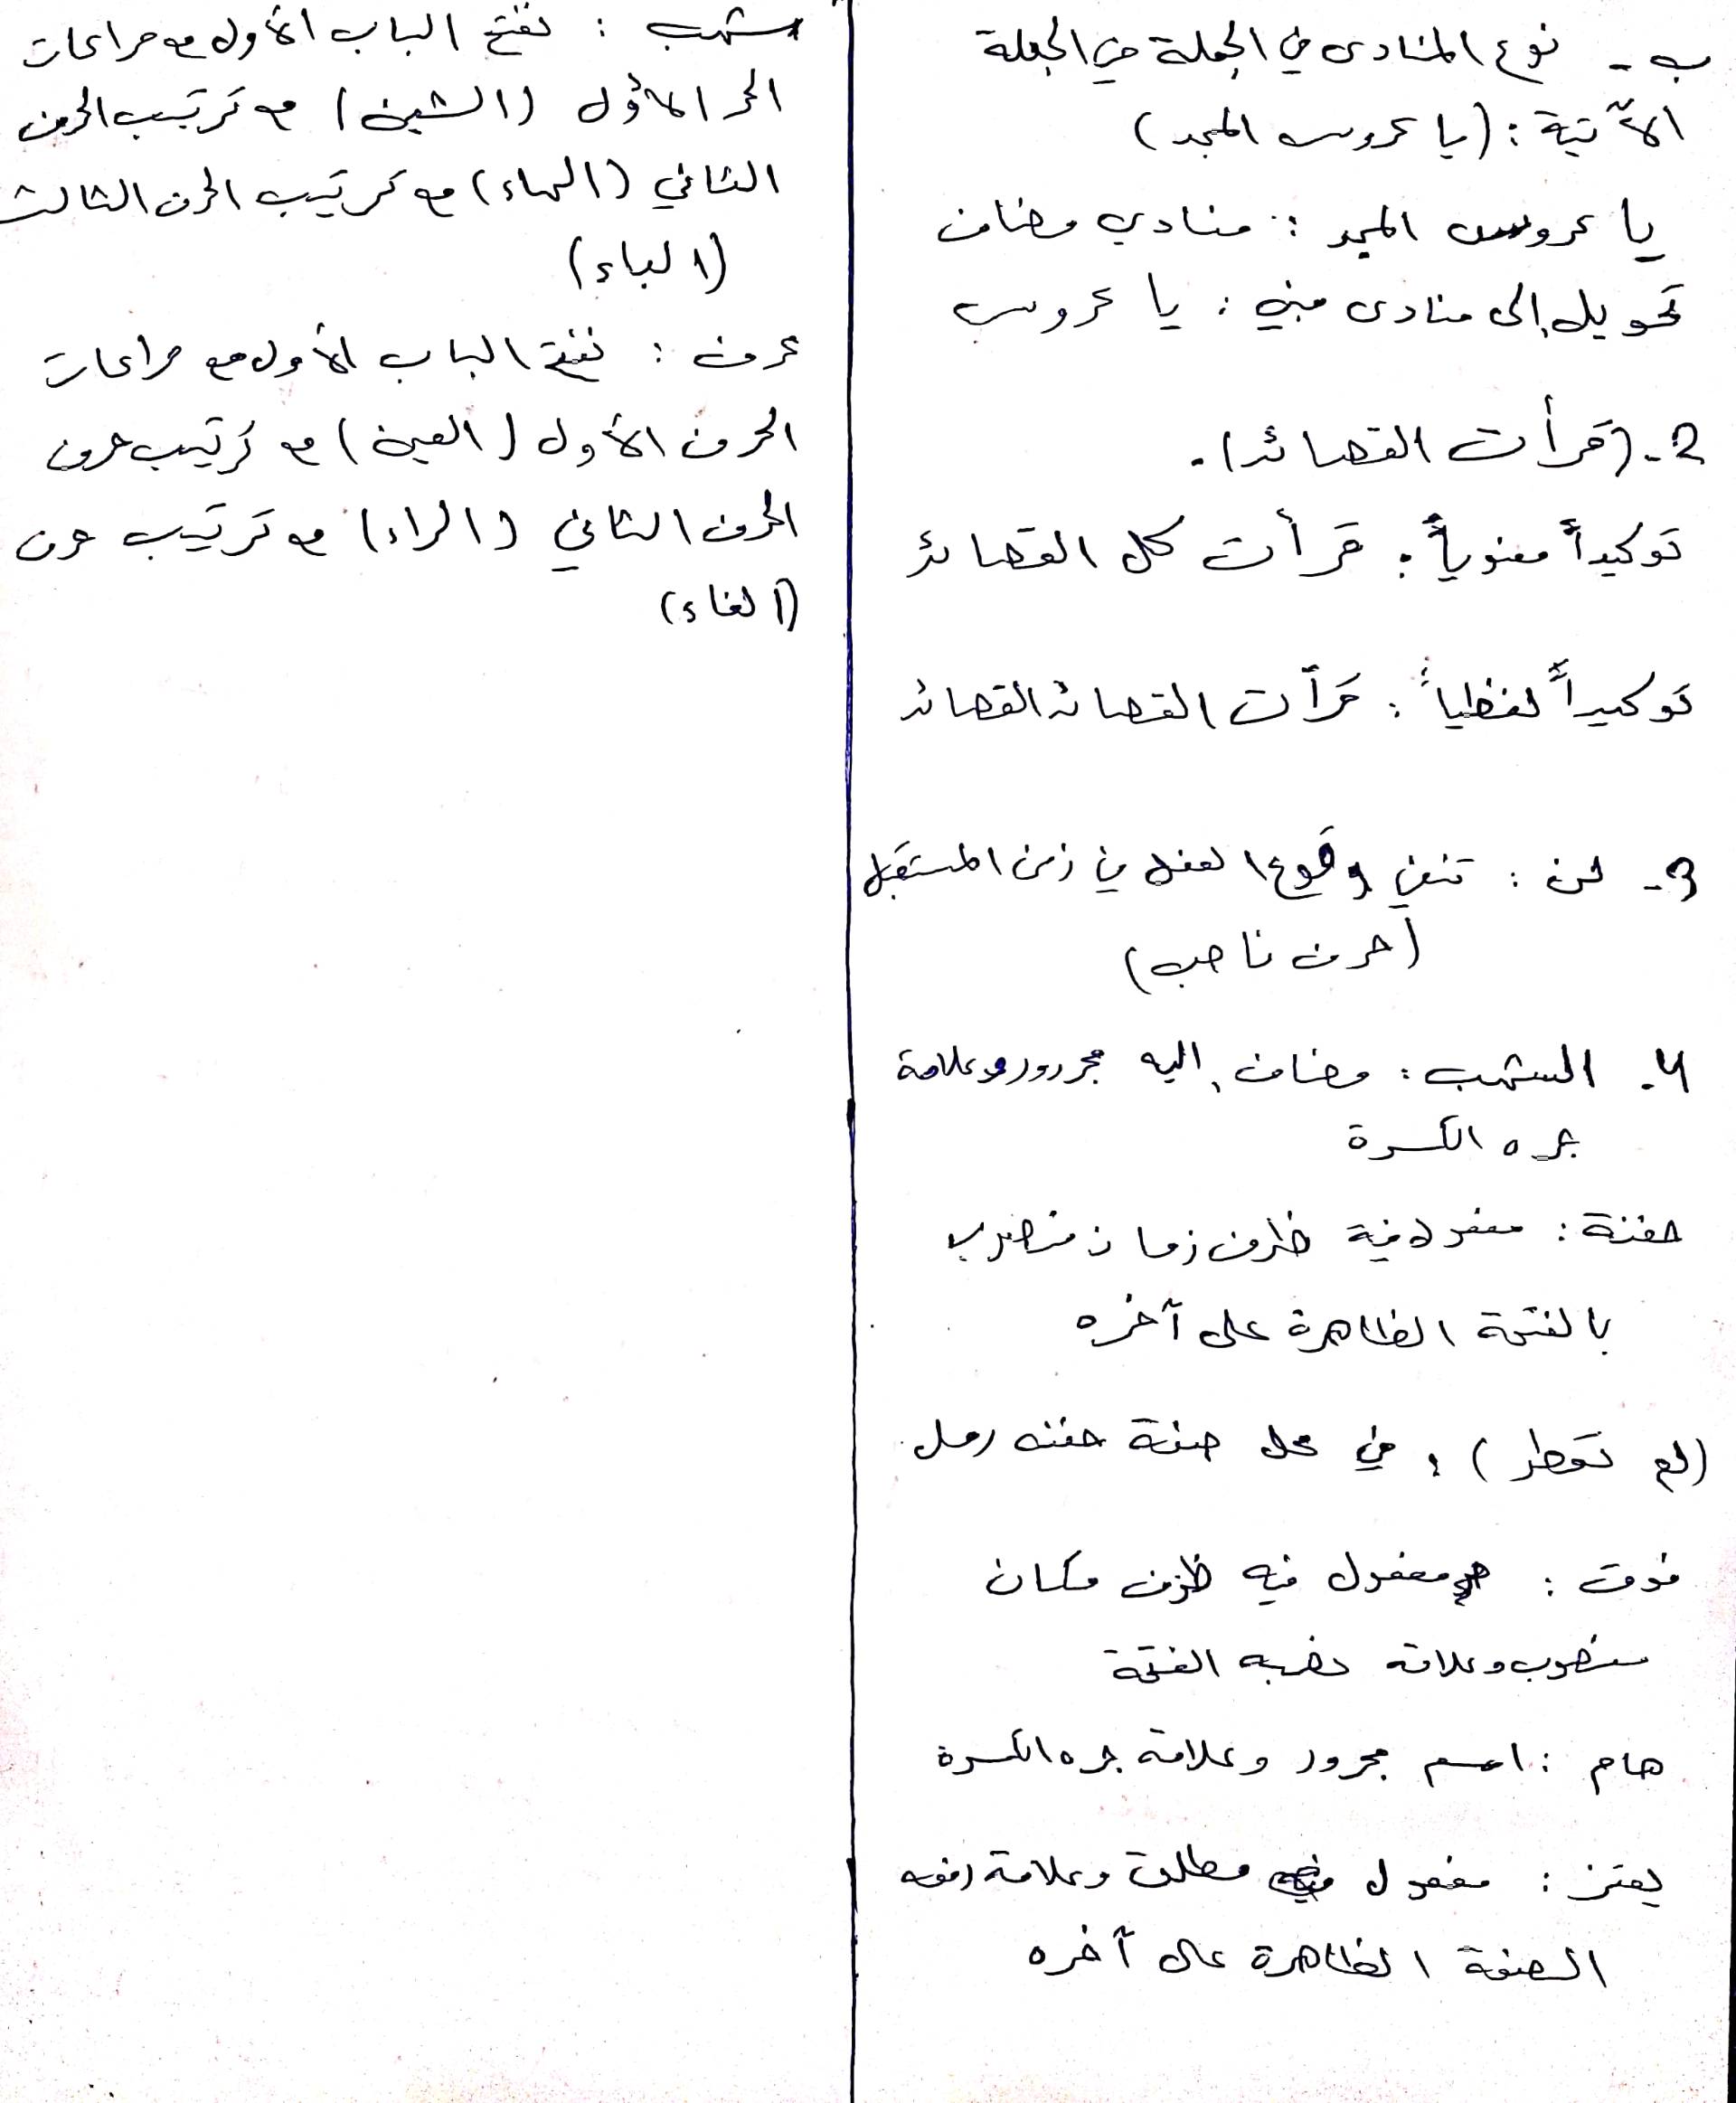 ب - نوع المنادى في الجملة في الجملة
الآتية : (يا عروس المجد)
يا عروس المجد : منادي مضاف
تحويل إلى منادى مبني : يا عروس
2- (قرأت القصائد) .
توكيداً معنوياً : قرأت كل القصائد
توكيداً لفظياً : قرأت القصائد القصائد
3- لن : تنفي وقوع الفعل في زمن المستقبل
(حرف ناصب)
4. الشهب : مضاف إليه مجرور وعلامة
جره الكسرة
حفنة : مفعول فية ظرف زمان منصوب
بالفتحة الظاهرة على آخره
(لم تعطر) : في محل صفة حفنه رمل .
فوق : مفعول فيه ظرف مكان
منصوب وعلامة نصبه الفتحة
هام : اسم مجرور وعلامة جره الكسرة
يعتز : مفعول مطلق وعلامة رفعه
الضمة الظاهرة على آخره
شهب : نفتح الباب الأول مع مراعات
الحر الأول (الشين) مع ترتيب الحرف
الثاني (الهاء) مع ترتيب الحرف الثالث
(الباء)
عرف : نفتح الباب الأول مع مراعات
الحرف الأول (العين) مع ترتيب حرف
الحرف الثاني (الراء) مع ترتيب حرف
(الفاء)